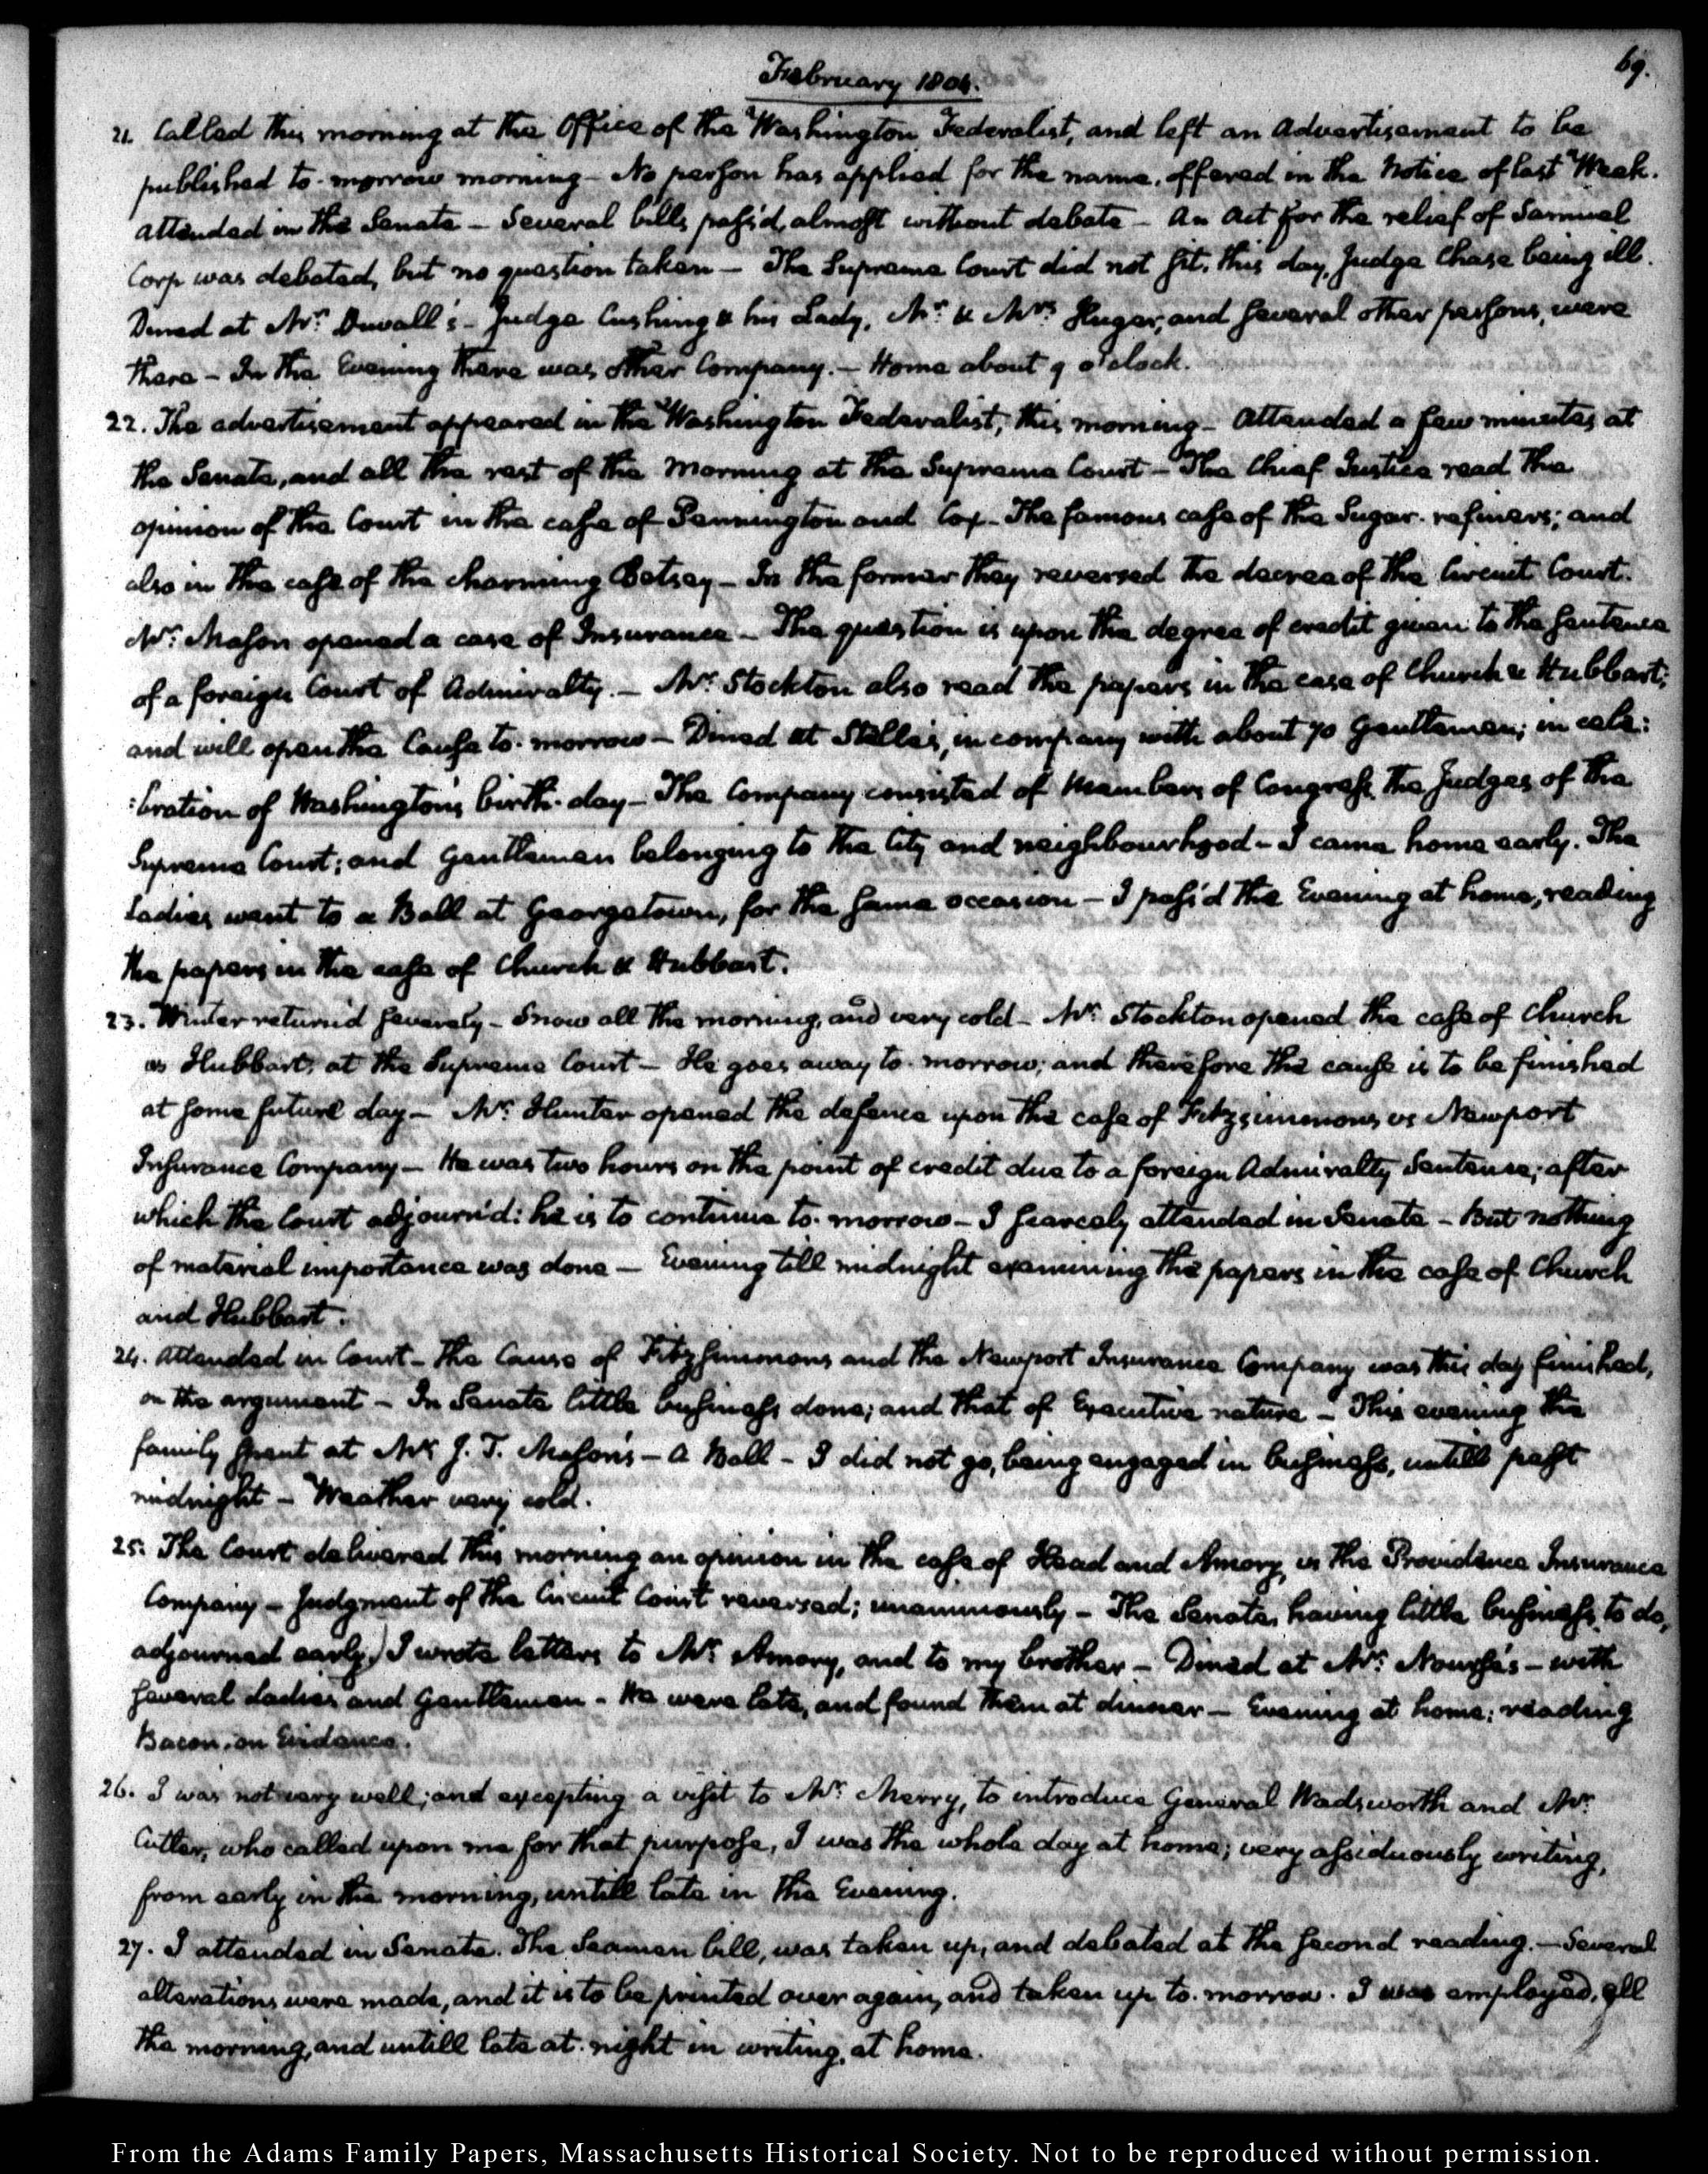 February 1804.
69.
21. Called this morning at the Office of the Washington Federalist, and left an Advertisement to be
published to-morrow morning — No person has applied for the name, offered in the Notice of last Week.
Attended in the Senate — Several bills pass'd, almost without debate — An Act for the relief of Samuel
Corp was debated, but no question taken — The Supreme Court did not sit, this day, Judge Chase being ill.
Dined at Mr. Duvall's — Judge Cushing & his Lady, Mr. & Mrs. Huger, and several other persons, were
there — In the Evening there was other Company. — Home about 9 o'clock.
22. The advertisement appeared in the Washington Federalist, this morning — Attended a few minutes at
the Senate, and all the rest of the Morning at the Supreme Court — The Chief Justice read the
opinion of the Court in the case of Pennington and Cox — The famous case of the Sugar-refiners; and
also in the case of the charming Betsey — In the former they reversed the decree of the Circuit Court.
Mr. Mason opened a case of Insurance — The question is upon the degree of credit given to the sentence
of a foreign Court of Admiralty. — Mr. Stockton also read the papers in the case of Church & Hubbart;
and will open the Cause to-morrow — Dined at Stelle's, in company with about 70 Gentlemen; in cele:
:bration of Washington's birth-day — The Company consisted of Members of Congress, the Judges of the
Supreme Court; and Gentlemen belonging to the City and neighbourhood — I came home early. The
Ladies went to a Ball at Georgetown, for the same occasion — I pass'd the Evening at home, reading
the papers in the case of Church & Hubbart.
23. Winter return'd severely — Snow all the morning, and very cold — Mr. Stockton opened the case of Church
vs Hubbart, at the Supreme Court — He goes away to-morrow; and therefore the cause is to be finished
at some future day — Mr. Hunter opened the defence upon the case of Fitzsimmons vs Newport
Insurance Company — He was two hours on the point of credit due to a foreign Admiralty Sentence; after
which the Court adjourn'd: he is to continue to-morrow — I scarcely attended in Senate — But nothing
of material importance was done — Evening till midnight examining the papers in the case of Church
and Hubbart.
24. Attended in Court — The Cause of Fitzsimmons and the Newport Insurance Company was this day finished,
on the argument — In Senate little business done; and that of Executive nature — This evening the
family spent at Mr. J. T. Mason's — A Ball — I did not go, being engaged in business, untill past
midnight — Weather very cold.
25. The Court delivered this morning an opinion in the case of Head and Amory, vs the Providence Insurance
Company — Judgment of the Circuit Court reversed; unanimously — The Senate, having little business to do,
adjourned early. I wrote letters to Mr. Amory, and to my brother — Dined at Mr. Nourse's — with
several Ladies and Gentlemen — We were late, and found them at dinner — Evening at home; reading
Bacon, on Evidence.
26. I was not very well; and excepting a visit to Mr. Merry, to introduce General Wadsworth and Mr.
Cutler, who called upon me for that purpose, I was the whole day at home; very assiduously writing,
from early in the morning, untill late in the Evening.
27. I attended in Senate. The Seamen bill, was taken up, and debated at the second reading. — Several
alterations were made, and it is to be printed over again, and taken up to-morrow. I was employed, all
the morning, and untill late at night in writing, at home.
From the Adams Family Papers, Massachusetts Historical Society. Not to be reproduced without permission.